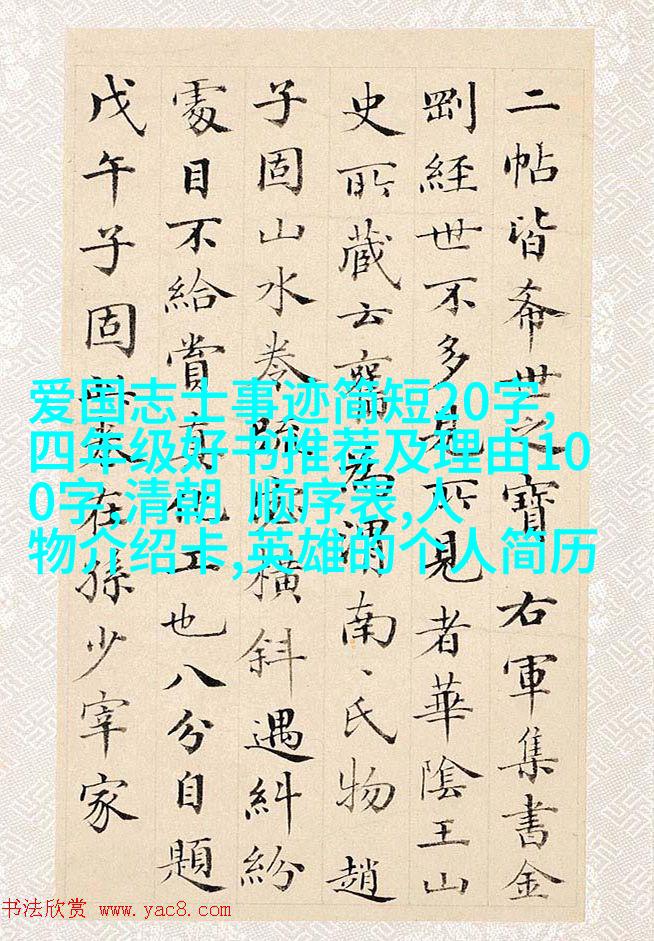 二帖皆希世之寶右軍集書金
剛經世不多見所見者華陰王山
史所藏云舊為渭南、氏物趙
子固山水卷疏密橫斜遇糾紛
處目不給賞真化工也八分自題
戊午子固卷在孫少宰家
爱国志士事迹简短20字,
四年级好书推荐及理由10
0字,清朝 顺序表,人
物介绍卡,英雄的个人简历
书法欣赏 www.yac8.com